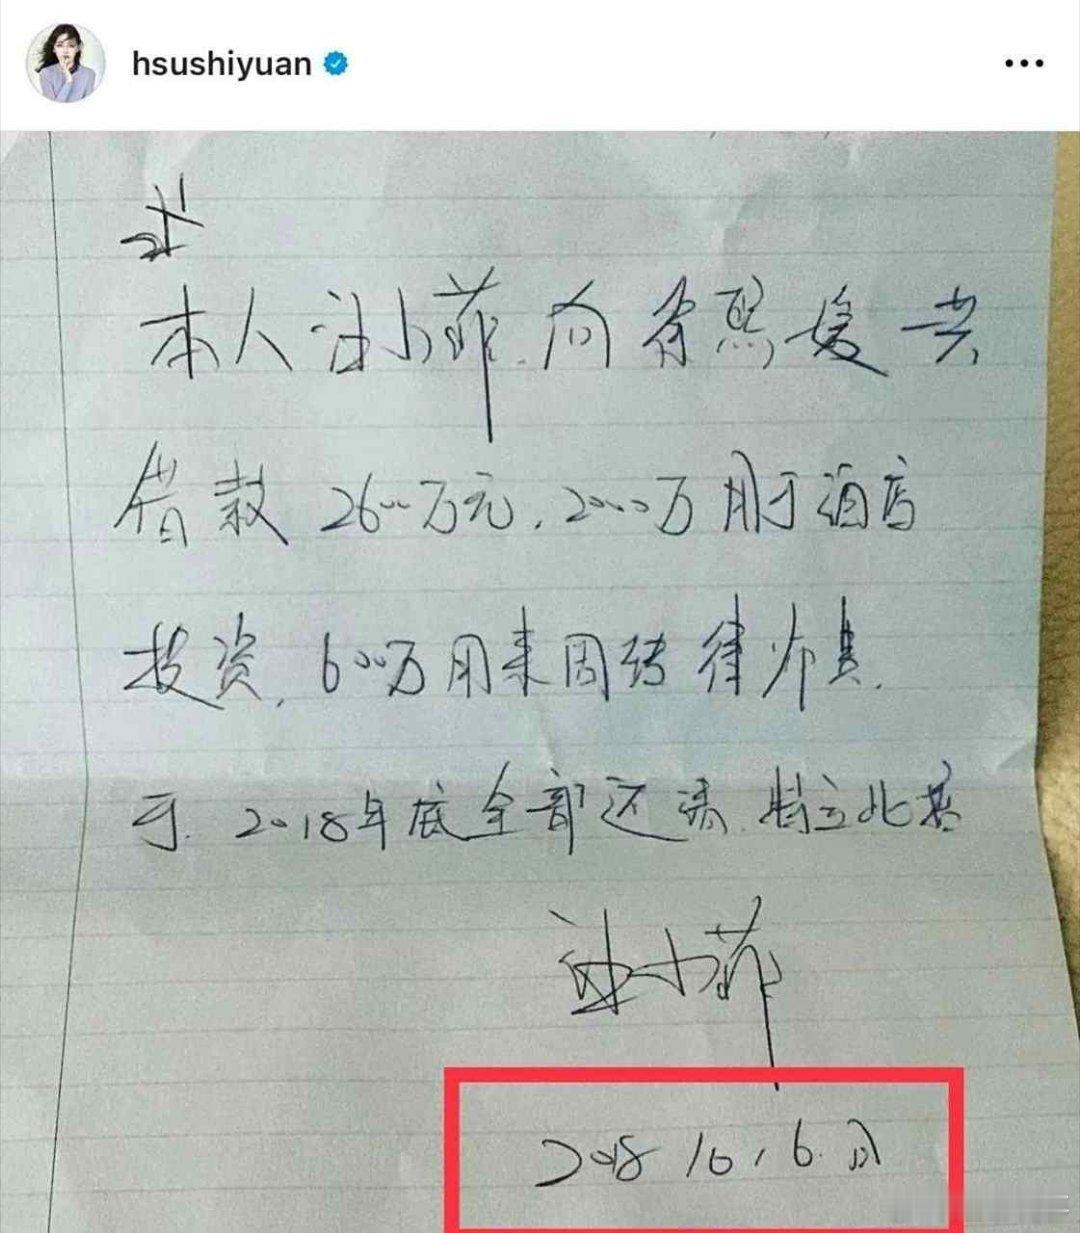 hsushiyuan
本人汪小菲.向徐熙媛共
借款2600万元,2000万用于酒店
投资,600万用来周转律师费.
于.2018年底全部还清.特立此其
汪小菲
2018 10,6.